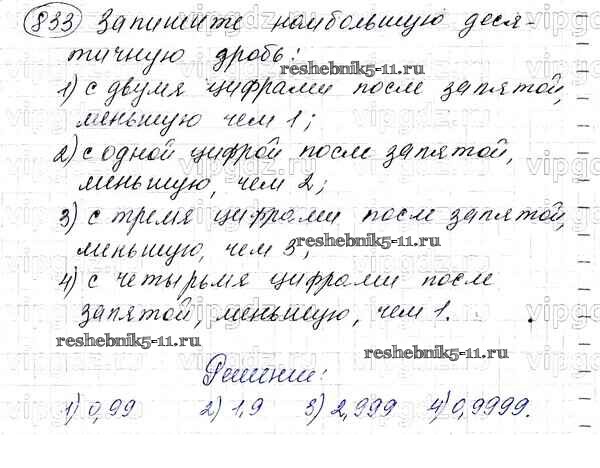 833 Запишите наибольшую деся-
тичную дробь:
reshebnik5-11.ru
1) с двумя цифрами после запятой,
меньшую чем 1;
2) с одной цифрой после запятой,
меньшую, чем 2;
3) с тремя цифрами после запятой,
меньшую, чем 3;
reshebnik5-11.ru
4) с четырьмя цифрами после
запятой, меньшую, чем 1.
reshebnik5-11.ru
reshebnik5-11.ru
Решение:
1) 0,99 2) 1,9 3) 2,999 4) 0,9999.